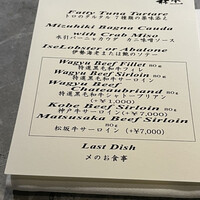 Fatty Tuna Tartare
トロのタルタル 7種類の薬味添え
Mizuhiki Bagna Cauda
with Crab Miso
水引バーニャカウダ カニ味噌ソース
IseLobster or Abalone
伊勢海老または鮑のソテー
Wagyu Beef Filler 80g
特選黒毛和牛フィレ
Wagyu Beef Sirloin 80g
特選黒毛和牛サーロイン
Wagyu Beef
Chateaubriand 80g
特選黒毛和牛シャトーブリアン
(+¥1,000)
Kobe Beef Sirloin 80g
神戸牛サーロイン (+¥7,000)
Matsusaka Beef Sirloin 80g
松阪牛サーロイン (+¥7,000)
Last Dish
〆のお食事